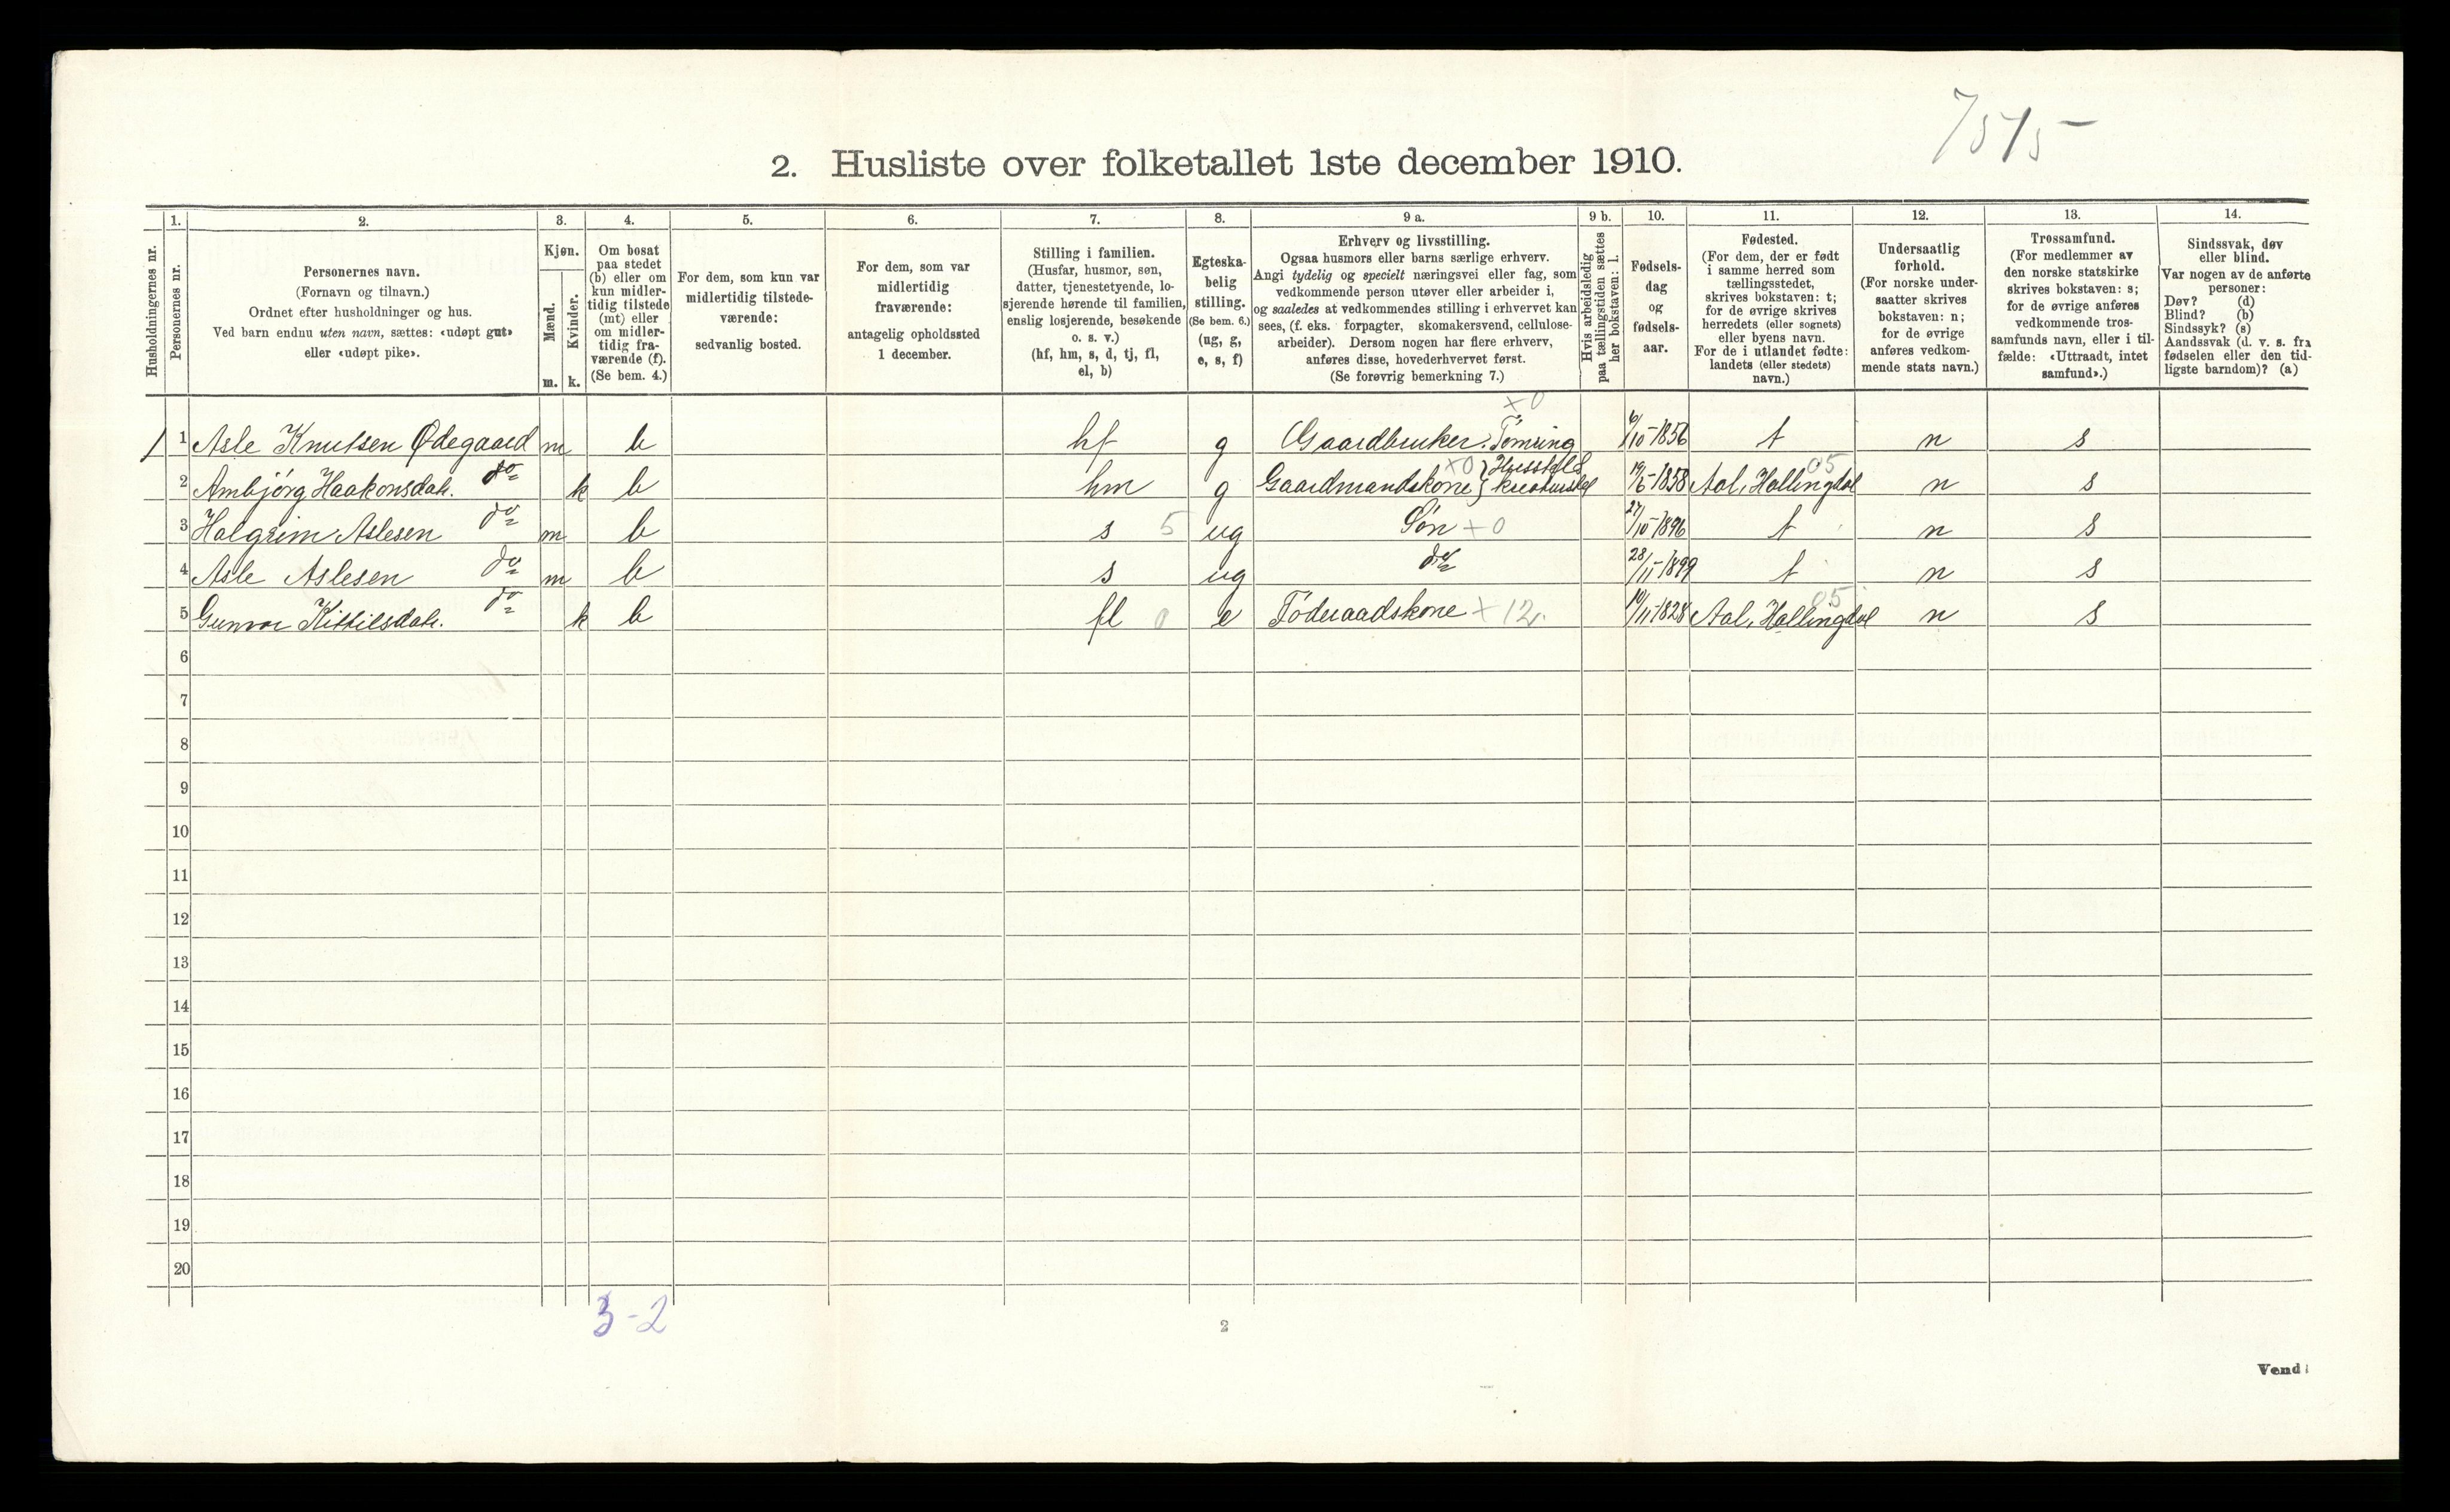 7515
2. Husliste over folketallet 1ste december 1910.
Husholdningernes nr.
1.
Personernes nr.
2.
Personernes navn.
(Fornavn og tilnavn.)
Ordnet efter husholdninger og hus.
Ved barn endnu uten navn, sættes: «udøpt gut»
eller «udøpt pike».
3.
Kjøn.
Mænd.
Kvinder.
m. k.
4.
Om bosat
paa stedet
(b) eller om
kun midler-
tidig tilstede
(mt) eller
om midler-
tidig fra-
værende (f).
(Se bem. 4.)
5.
For dem, som kun var
midlertidig tilstede-
værende:
sedvanlig bosted.
6.
For dem, som var
midlertidig
fraværende:
antagelig opholdssted
1 december.
7.
Stilling i familien.
(Husfar, husmor, søn,
datter, tjenestetyende, lo-
sjerende hørende til familien,
enslig losjerende, besøkende
o. s. v.)
(hf, hm, s, d, tj, fl,
el, b)
8.
Egteska-
belig
stilling.
(Se bem. 6.)
(ug, g,
e, s, f)
9 a.
Erhverv og livsstilling.
Ogsaa husmors eller barns særlige erhverv.
Angi tydelig og specielt næringsvei eller fag, som
vedkommende person utøver eller arbeider i,
og saaledes at vedkommendes stilling i erhvervet kan
sees, (f. eks. forpagter, skomakersvend, cellulose-
arbeider). Dersom nogen har flere erhverv,
anføres disse, hovederhvervet først.
(Se forøvrig bemerkning 7.)
9 b.
Hvis arbeidsledig
paa tællingstiden sættes
her bokstaven: l.
10.
Fødsels-
dag
og
fødsels-
aar.
11.
Fødested.
(For dem, der er født
i samme herred som
tællingsstedet,
skrives bokstaven: t;
for de øvrige skrives
herredets (eller sognets)
eller byens navn.
For de i utlandet fødte:
landets (eller stedets)
navn.)
12.
Undersaatlig
forhold.
(For norske under-
saatter skrives
bokstaven: n;
for de øvrige
anføres vedkom-
mende stats navn.)
13.
Trossamfund.
(For medlemmer av
den norske statskirke
skrives bokstaven: s;
for de øvrige anføres
vedkommende tros-
samfunds navn, eller i til-
fælde: «Uttraadt, intet
samfund».)
14.
Sindssvak, døv
eller blind.
Var nogen av de anførte
personer:
Døv? (d)
Blind? (b)
Sindssyk? (s)
Aandssvak (d. v. s. fra
fødselen eller den tid-
ligste barndom)? (a)
x 0
1 1 Asle Knutsen Ødegaard m b hf g Gaardbruker. Tømring 6/10-1856 t n s
2 Ambjörg Haakonsdatr. do k b hm g Gaardmandskone x0 } Husstel & kreaturstel 19/5-1858 Aal, Hallingdal 05 n s
3 Halgrim Aslesen do m b s 5 ug Søn + 0 27/10-1896 t n s
4 Asle Aslesen do m b s ug do 28/11-1899 t n s
5 Gunvor Kittilsdatr. do k b fl 0 e Føderaadskone + 12. 10/11-1828 Aal, Hallingdal 05 n s
6
7
8
9
10
11
12
13
14
15
16
17
18
19
20
3-2
2
Vend!